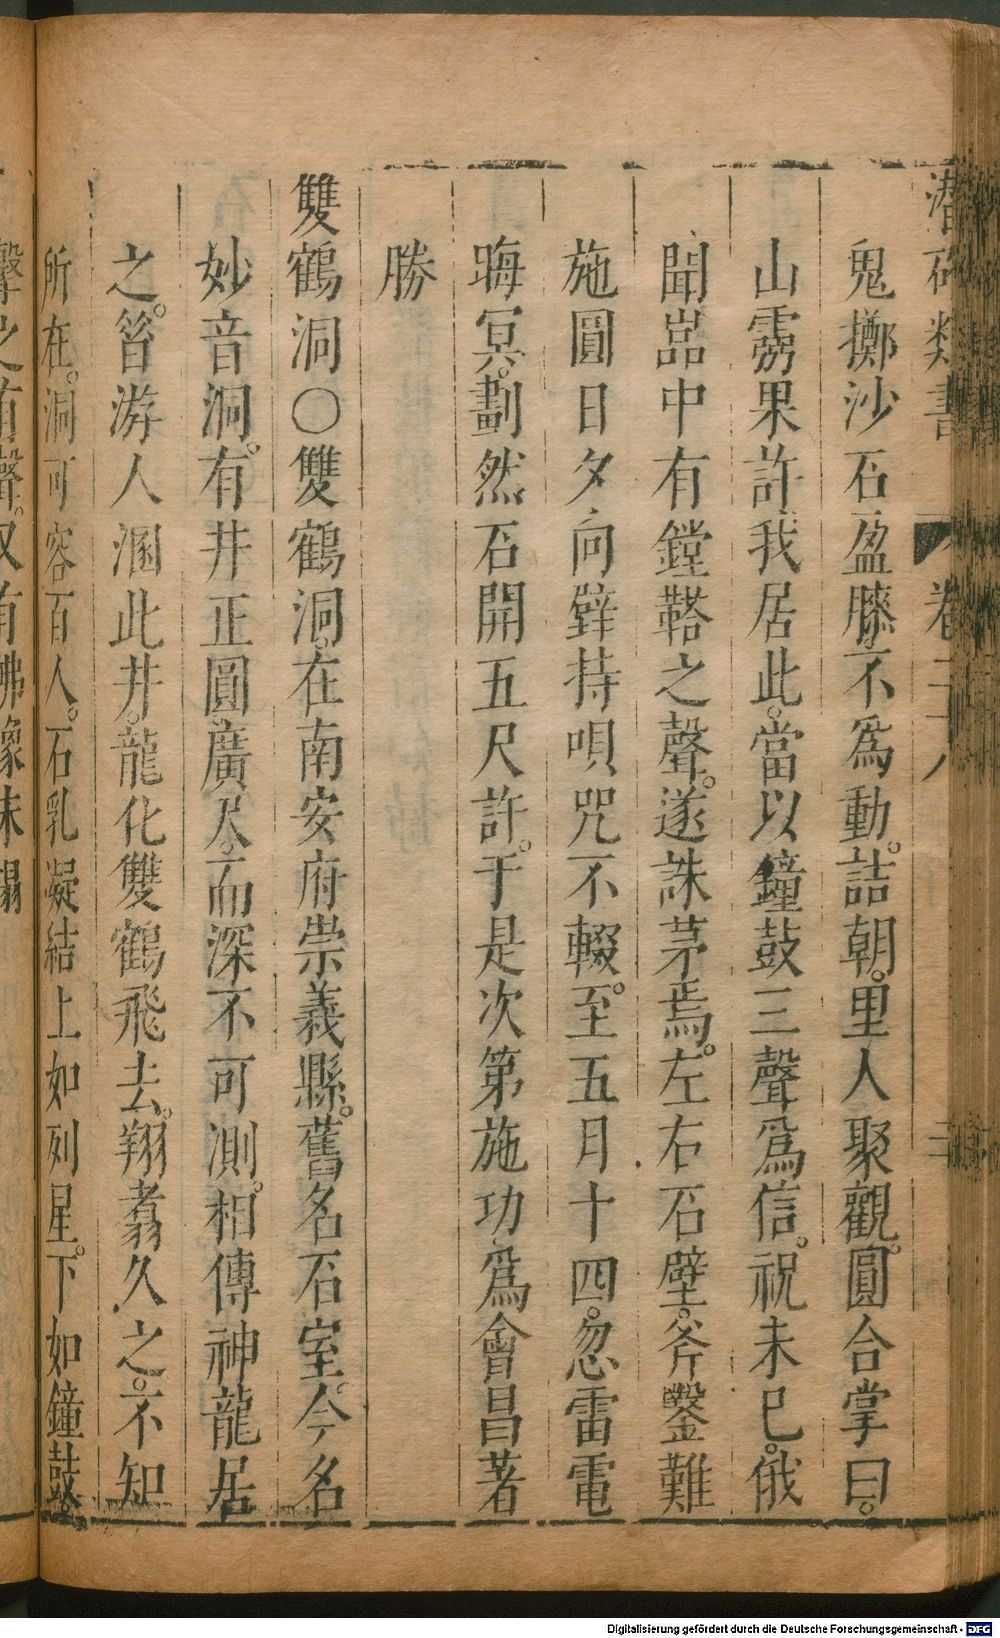 潛確類書 卷二十八 三
鬼擲沙石盈膝不爲動。詰朝。里人聚觀。圓合掌曰。
山靈果許我居此。當以鐘鼓三聲爲信。祝未已。俄
聞嵓中有鏜鞳之聲。遂誅茅焉。左右石壁。斧鑿難
施圓日夕向壁持唄咒不輟。至五月十四。忽雷電
晦冥。劃然石開五尺許。于是次第施功爲會昌著
勝
雙鶴洞○雙鶴洞。在南安府崇義縣。舊名石室。今名
妙音洞。有井正圓。廣尺。而深不可測。相傳神龍居
之。昝游人溷此井。龍化雙鶴飛去。翔翥久之。不知
所在。洞可容百人。石乳凝結上如列星。下如鐘鼓。
聲之有聲。又有佛像床榻
Digitalisierung gefördert durch die Deutsche Forschungsgemeinschaft - DFG